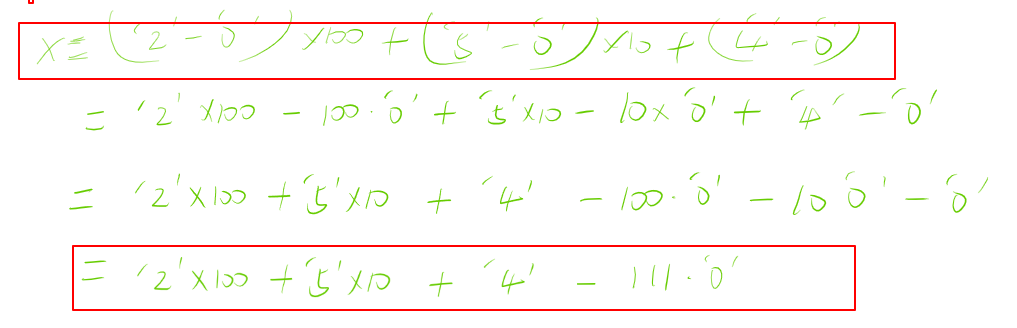 x = ('2' - '0') × 100 + ('5' - '0') × 10 + ('4' - '0')
= '2' × 100 - 100 · '0' + '5' × 10 - 10 × '0' + '4' - '0'
= '2' × 100 + '5' × 10 + '4' - 100 · '0' - 10 '0' - '0'
= '2' × 100 + '5' × 10 + '4' - 111 · '0'